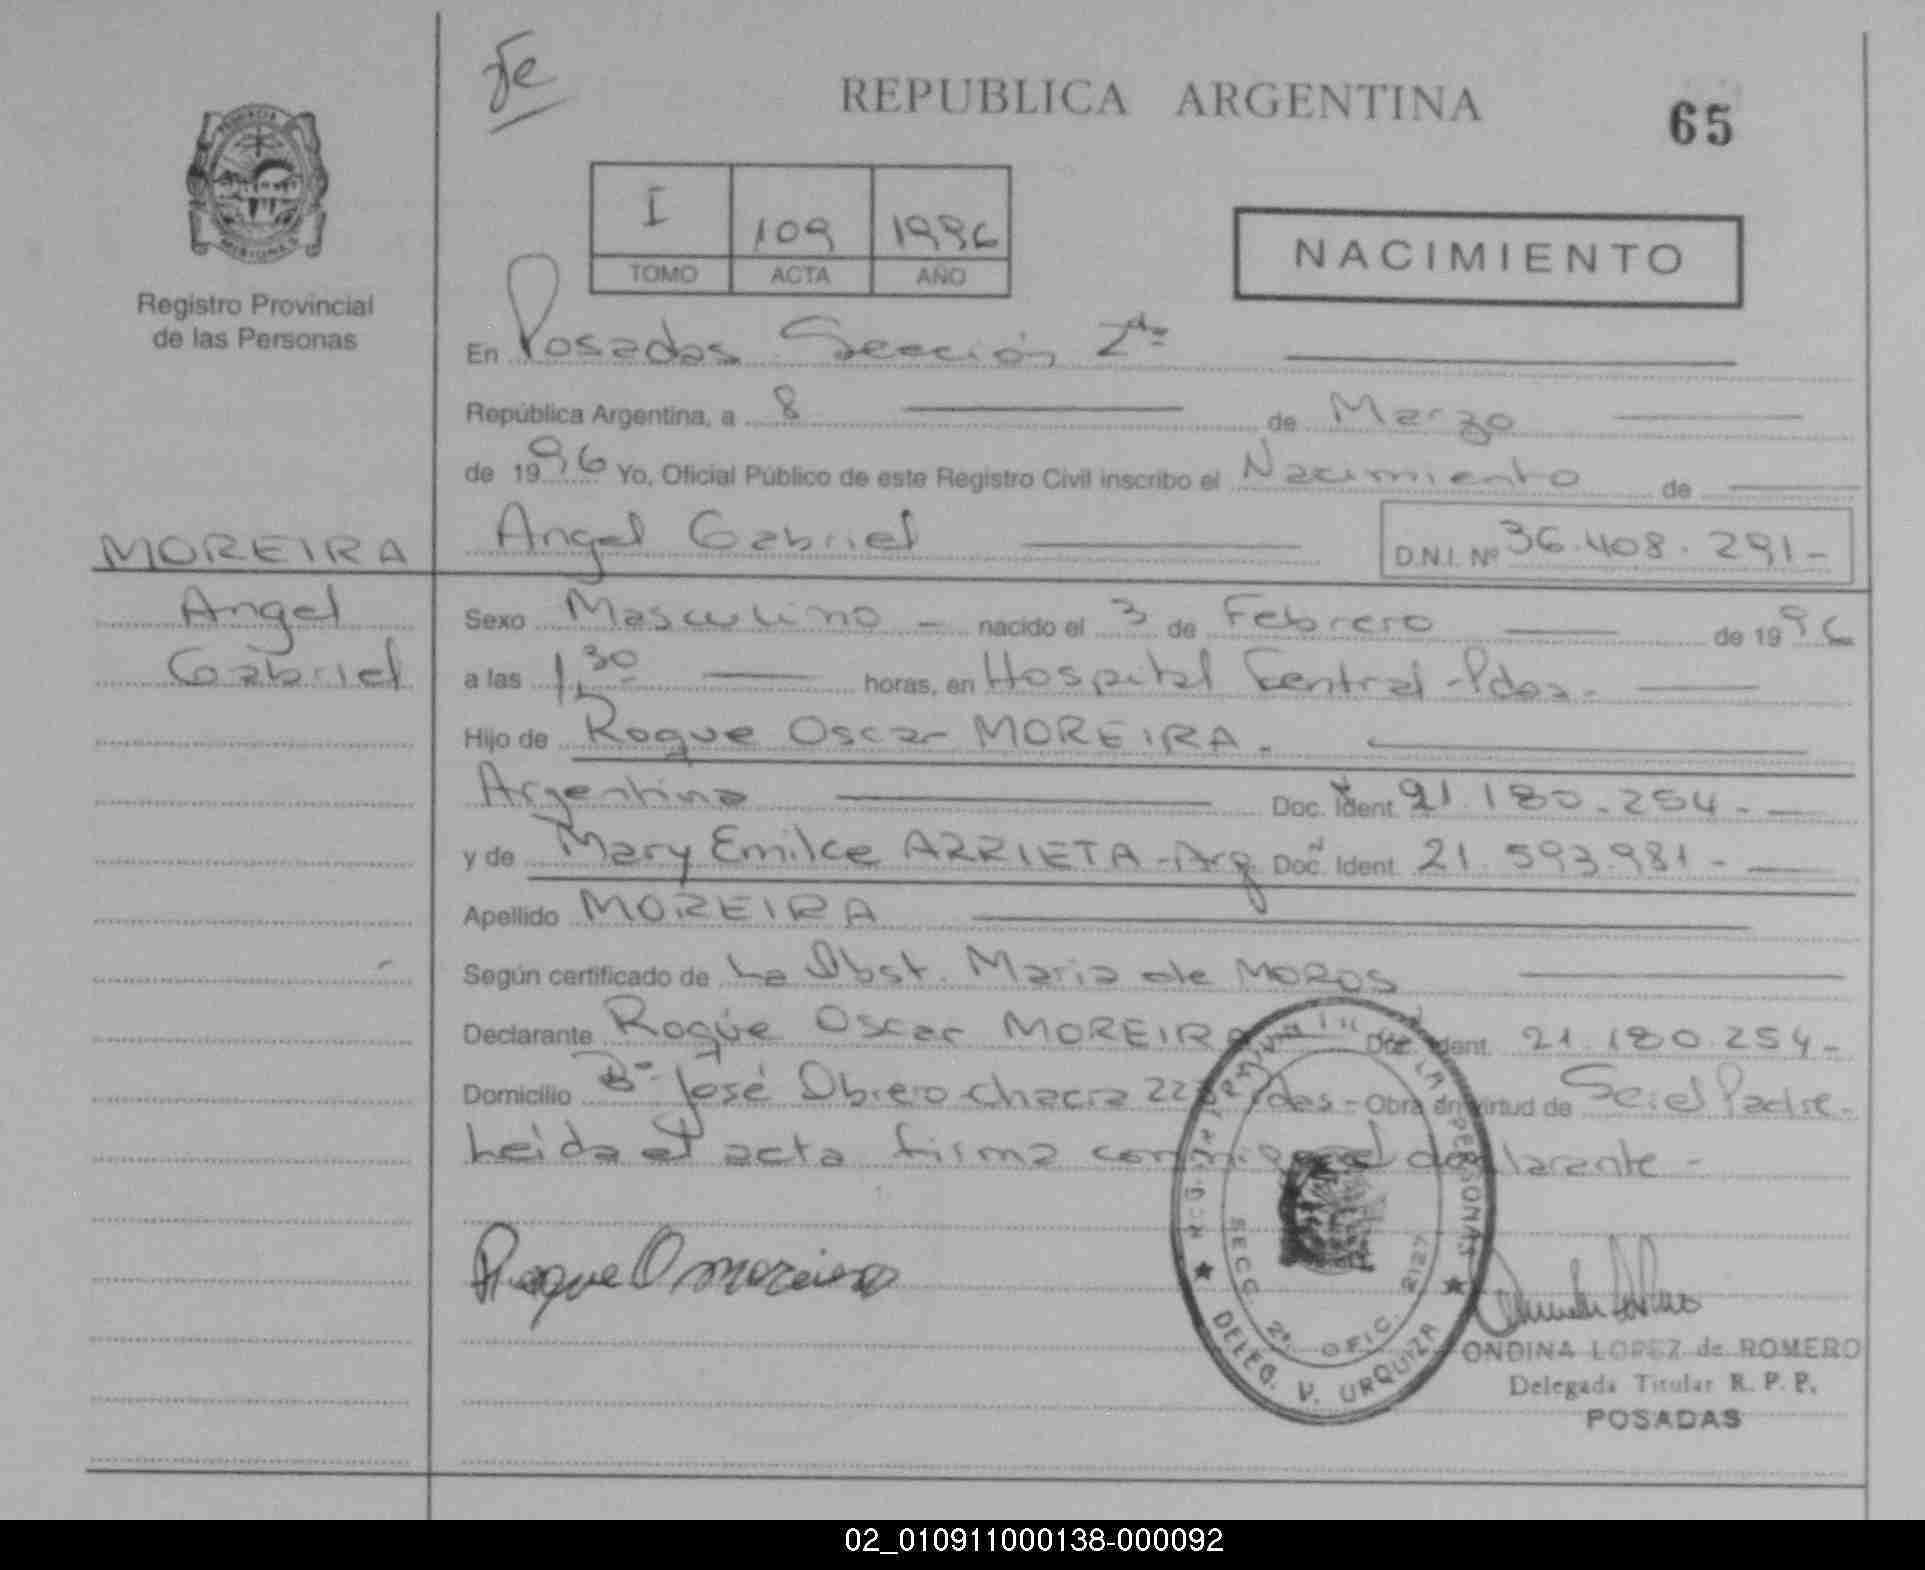 Fe
REPUBLICA ARGENTINA
65
PROVINCIA
MISIONES
Registro Provincial
de las Personas
I 109 1996
TOMO ACTA AÑO
NACIMIENTO
En Posadas Sección 2da
República Argentina, a 8 de Marzo
de 1996 Yo, Oficial Público de este Registro Civil inscribo el Nacimiento de
MOREIRA Angel Gabriel D.N.I. Nº 36.408.291-
Angel
Gabriel
Sexo Masculino - nacido el 3 de Febrero de 1996
a las 1,30 horas, en Hospital Central - Pdas-
Hijo de Roque Oscar MOREIRA.
Argentina Doc. Ident. 21.180.254-
y de Mary Emilce ARRIETA - Arg Doc. Ident. 21.593.981-
Apellido MOREIRA
Según certificado de La Obst. Maria de MOROS
Declarante Roque Oscar MOREIRA Doc. Ident. 21.180.254-
Domicilio Bº José Obrero chacra Pdas - Obra en virtud de Ser el Padre-
Leida el acta firma conmigo el declarante-
Roque O moreira
DE LAS PERSONAS
SECC. 2ª. OFIC. 2127
DELEG. V. URQUIZA
ONDINA LOPEZ de ROMERO
Delegada Titular R. P. P.
POSADAS
02_010911000138-000092